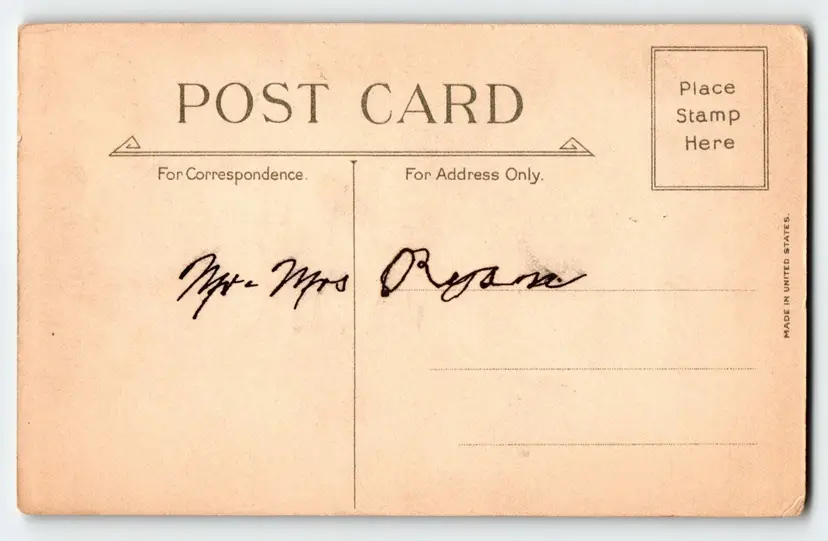 POST CARD
Place
Stamp
Here
For Correspondence.
For Address Only.
Mr. Mrs Ryan
MADE IN UNITED STATES.